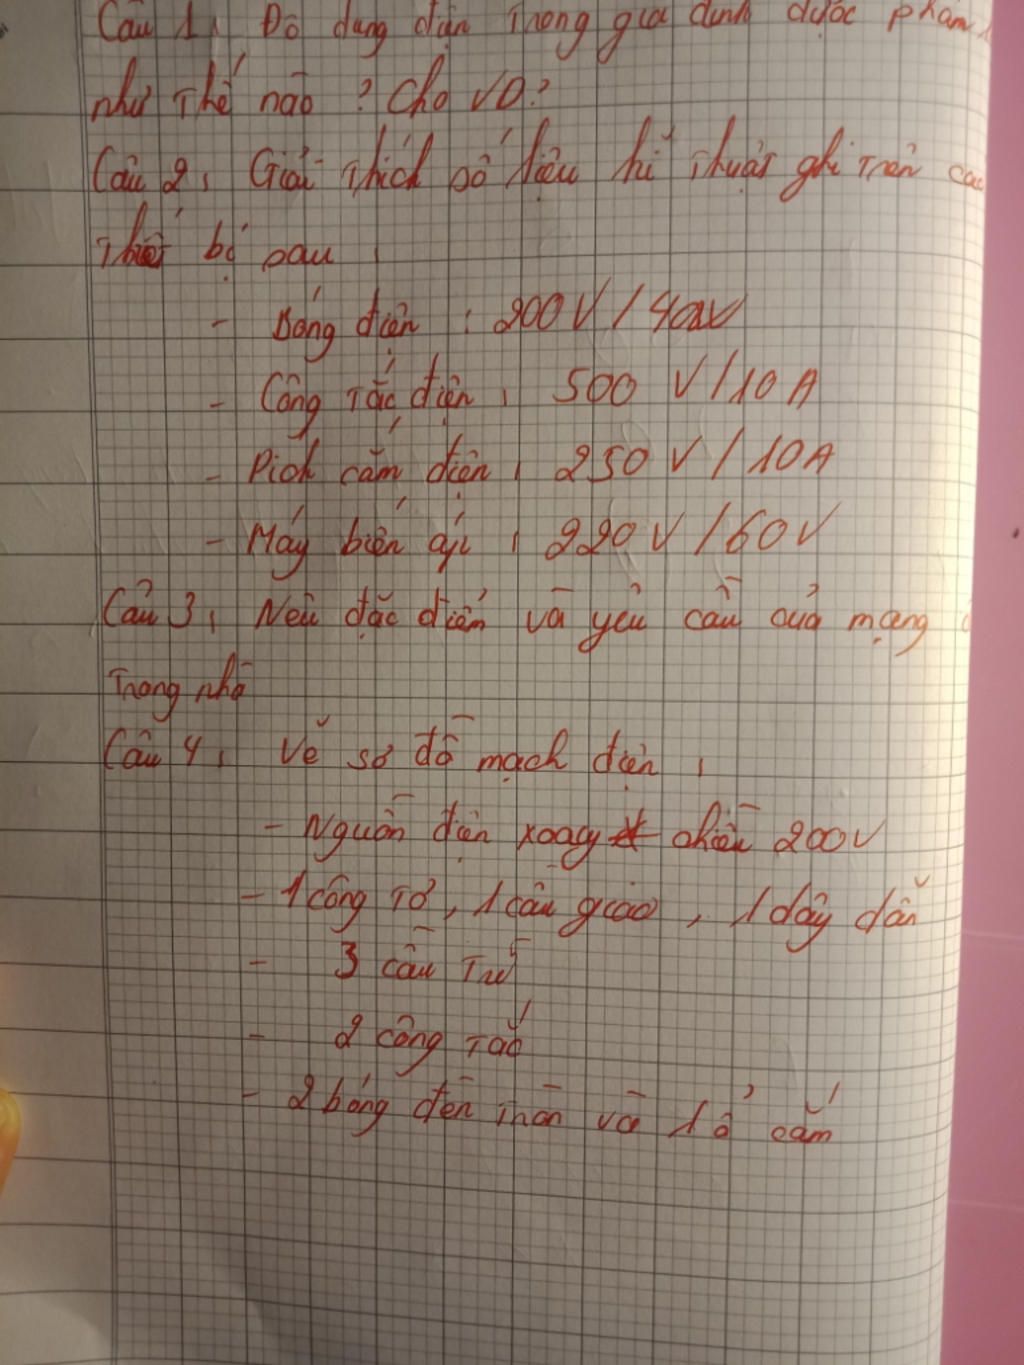 Câu 1, Đồ dùng điện trong gia đình được phân
như thế nào? Cho VD?
Câu 2, Giải thích số liệu kĩ thuật ghi trên các
thiết bị sau
- Bóng điện : 200V/40W
- Công tắc điện, 500 V/10A
- Pich cắm điện, 250V/10A
- Máy biến áp, 220V/60V
Câu 3, Nêu đặc điểm và yêu cầu của mạng
trong nhà
Câu 4, Vẽ sơ đồ mạch điện,
- Nguồn điện xoay chiều 200V
- 1 công tơ, 1 cầu giao, 1 dây dẫn
- 3 cầu trì
- 2 công tắc
- 2 bóng đèn tròn và 1 ổ cắm